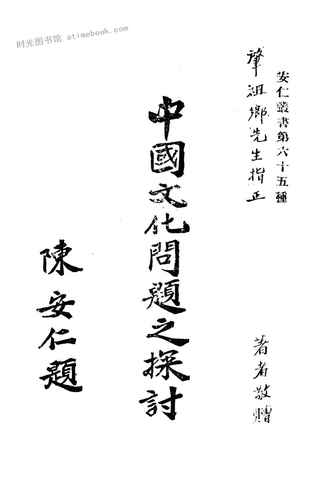 时光图书馆 atimebook.com
安仁叢書第六十五種
肇祖鄉先生指正
著者敬贈
中國文化問題之探討
陳安仁題